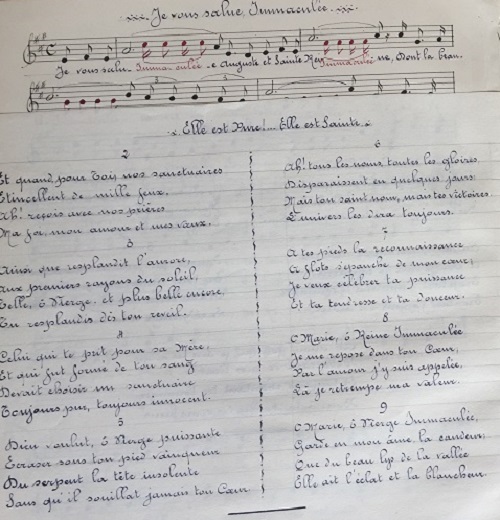 Je vous salue, Immaculée
Je vous salu. Imma- culée .e Auguste et Sainte Rei Immaculé ne, Dont la beau.
3 3
Elle est Pure!... Elle est Sainte.
2
Et quand pour Toi, nos sanctuaires
Etincellent de mille feux,
Ah! reçois avec nos prières
Ma foi, mon amour et mes vœux.
3
Ainsi que resplendit l'aurore,
Aux premiers rayons du soleil,
Telle, ô Vierge, et plus belle encore,
Tu resplendis dès ton réveil.
4
Celui qui te prit pour sa Mère,
Et qui fut formé de ton sang
Devait choisir un sanctuaire
Toujours pur, toujours innocent.
5
Dieu voulut, ô Vierge puissante
Ecraser sous ton pied vainqueur
Du serpent la tête insolente
Sans qu'il souillat jamais ton Cœur.
6
Ah! tous les noms, toutes les gloires
Disparaissent en quelques jours:
Mais ton saint nom, mais tes victoires
L'univers les dira toujours.
7
A tes pieds la reconnaissance
A flots s'épanche de mon cœur;
Je veux célébrer ta puissance
Et ta tendresse et ta douceur.
8
O Marie, ô Reine Immaculée
Je me repose dans ton Cœur,
Par l'amour j'y suis appelée,
Là je retrempe ma valeur.
9
O Marie, ô Vierge Immaculée,
Garde en mon âme la candeur;
Que du beau lys de la vallée
Elle ait l'éclat et la blancheur.